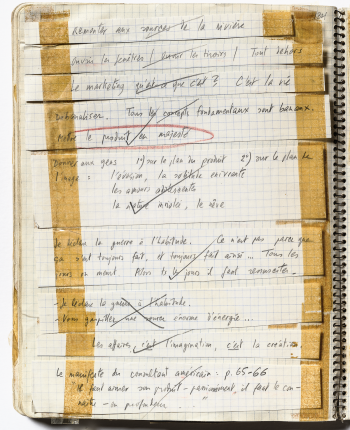 Remonter aux sources de la rivière
ouvrir les fenêtres / ouvrir les tiroirs / Tout dehors
Le marketing qu'est-ce que c'est ? C'est la vie
Tous les concepts fondamentaux sont banaux.
Mettre le produit en majesté
Donner aux gens 1°) sur le plan du produit 2°) sur le plan de
l'image : l'évasion, la enivrante
les amours
la le rêve
Je déclare la guerre à l'habitude. Ce n'est pas parce que
ça s'est toujours fait, et toujours fait ainsi ... Tous les
jours on meurt. Alors ts les jours il faut ressusciter.
- Je déclare la guerre à l'habitude.
- Vous gaspillez une somme énorme d'énergie ...
Les affaires, c'est l'imagination, c'est la création
Le manifeste du consultant américain : p. 65-66
Il faut aimer son produit - passionnément, il faut le con-
naître - en profondeur. "